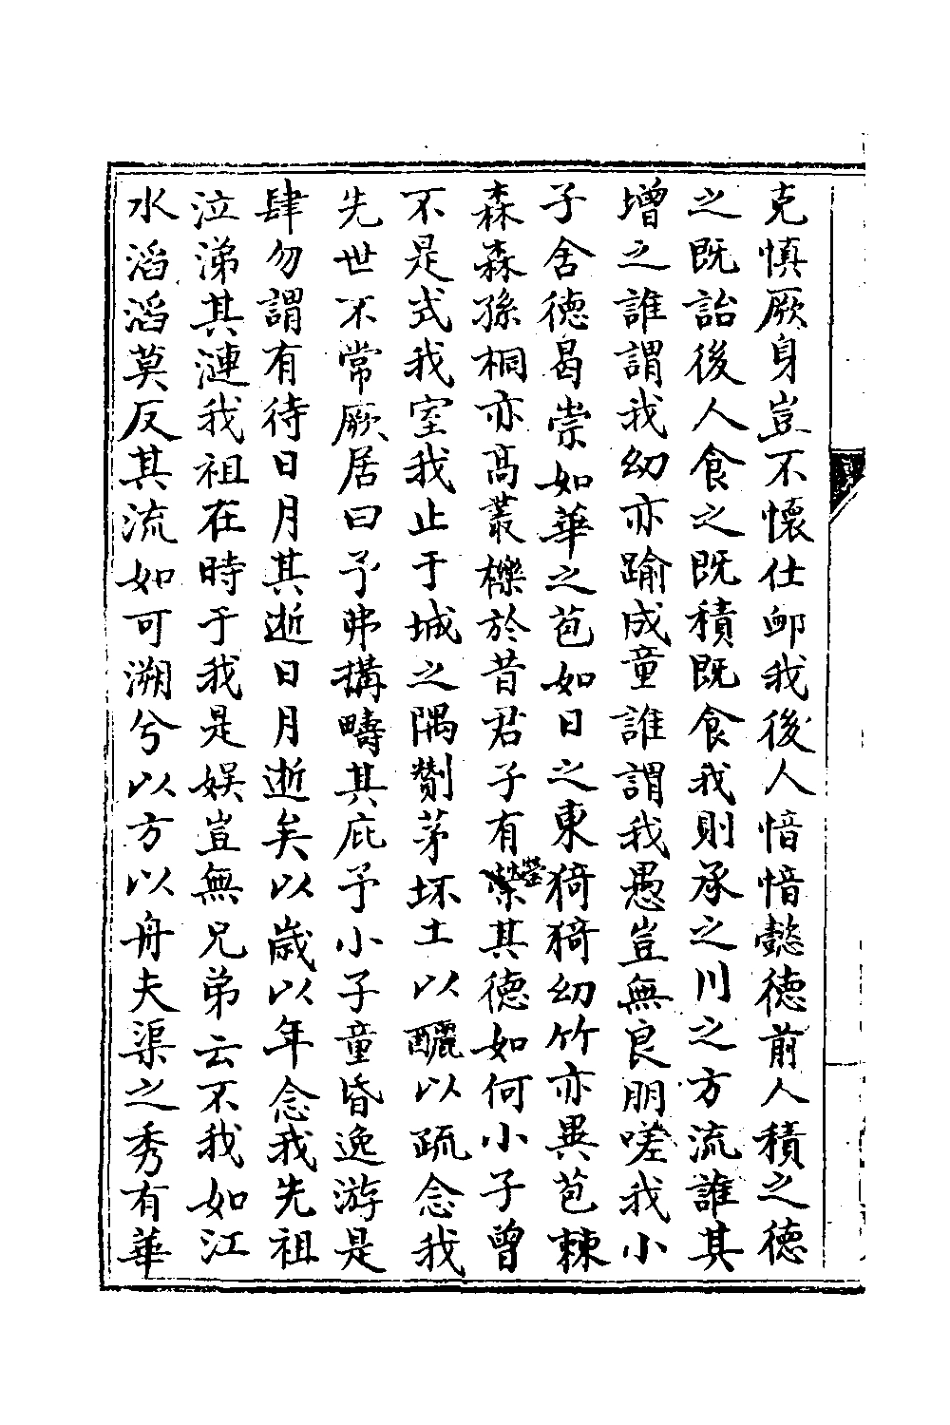 克慎厥身豈不懷仕邮我後人愔愔懿德前人積之德
之既詒後人食之既積既食我則承之川之方流誰其
增之誰謂我幼亦踰成童誰謂我愚豈無良朋嗟我小
子舍德曷崇如華之苞如日之東猗猗幼竹亦異苞棘
森森孫桐亦高叢櫟於昔君子有榮其德如何小子曾
不是式我室我止于城之隅劗茅坏土以釃以疏念我
先世不常厥居曰予弗搆疇其庇予小子童昏逸游是
肆勿謂有待日月其逝日月逝矣以歲以年念我先祖
泣涕其漣我祖在時于我是娛豈無兄弟云不我如江
水滔滔莫反其流如可溯兮以方以舟夫渠之秀有華